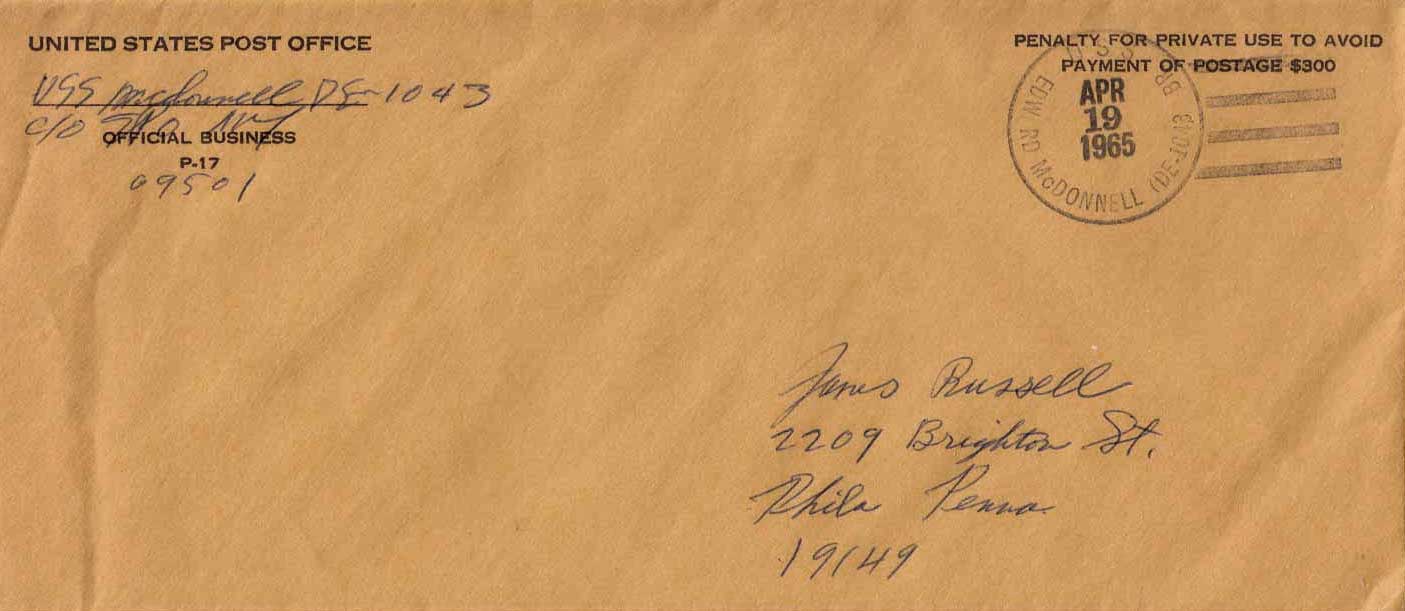 UNITED STATES POST OFFICE
USS McDonnell DE-1043
c/o FPO NY
OFFICIAL BUSINESS
P-17
09501
PENALTY FOR PRIVATE USE TO AVOID
PAYMENT OF POSTAGE $300
U.S.S. EDW RD McDONNELL (DE-1043) BR
APR
19
1965
James Russell
2209 Brighton St.
Phila Penna.
19149